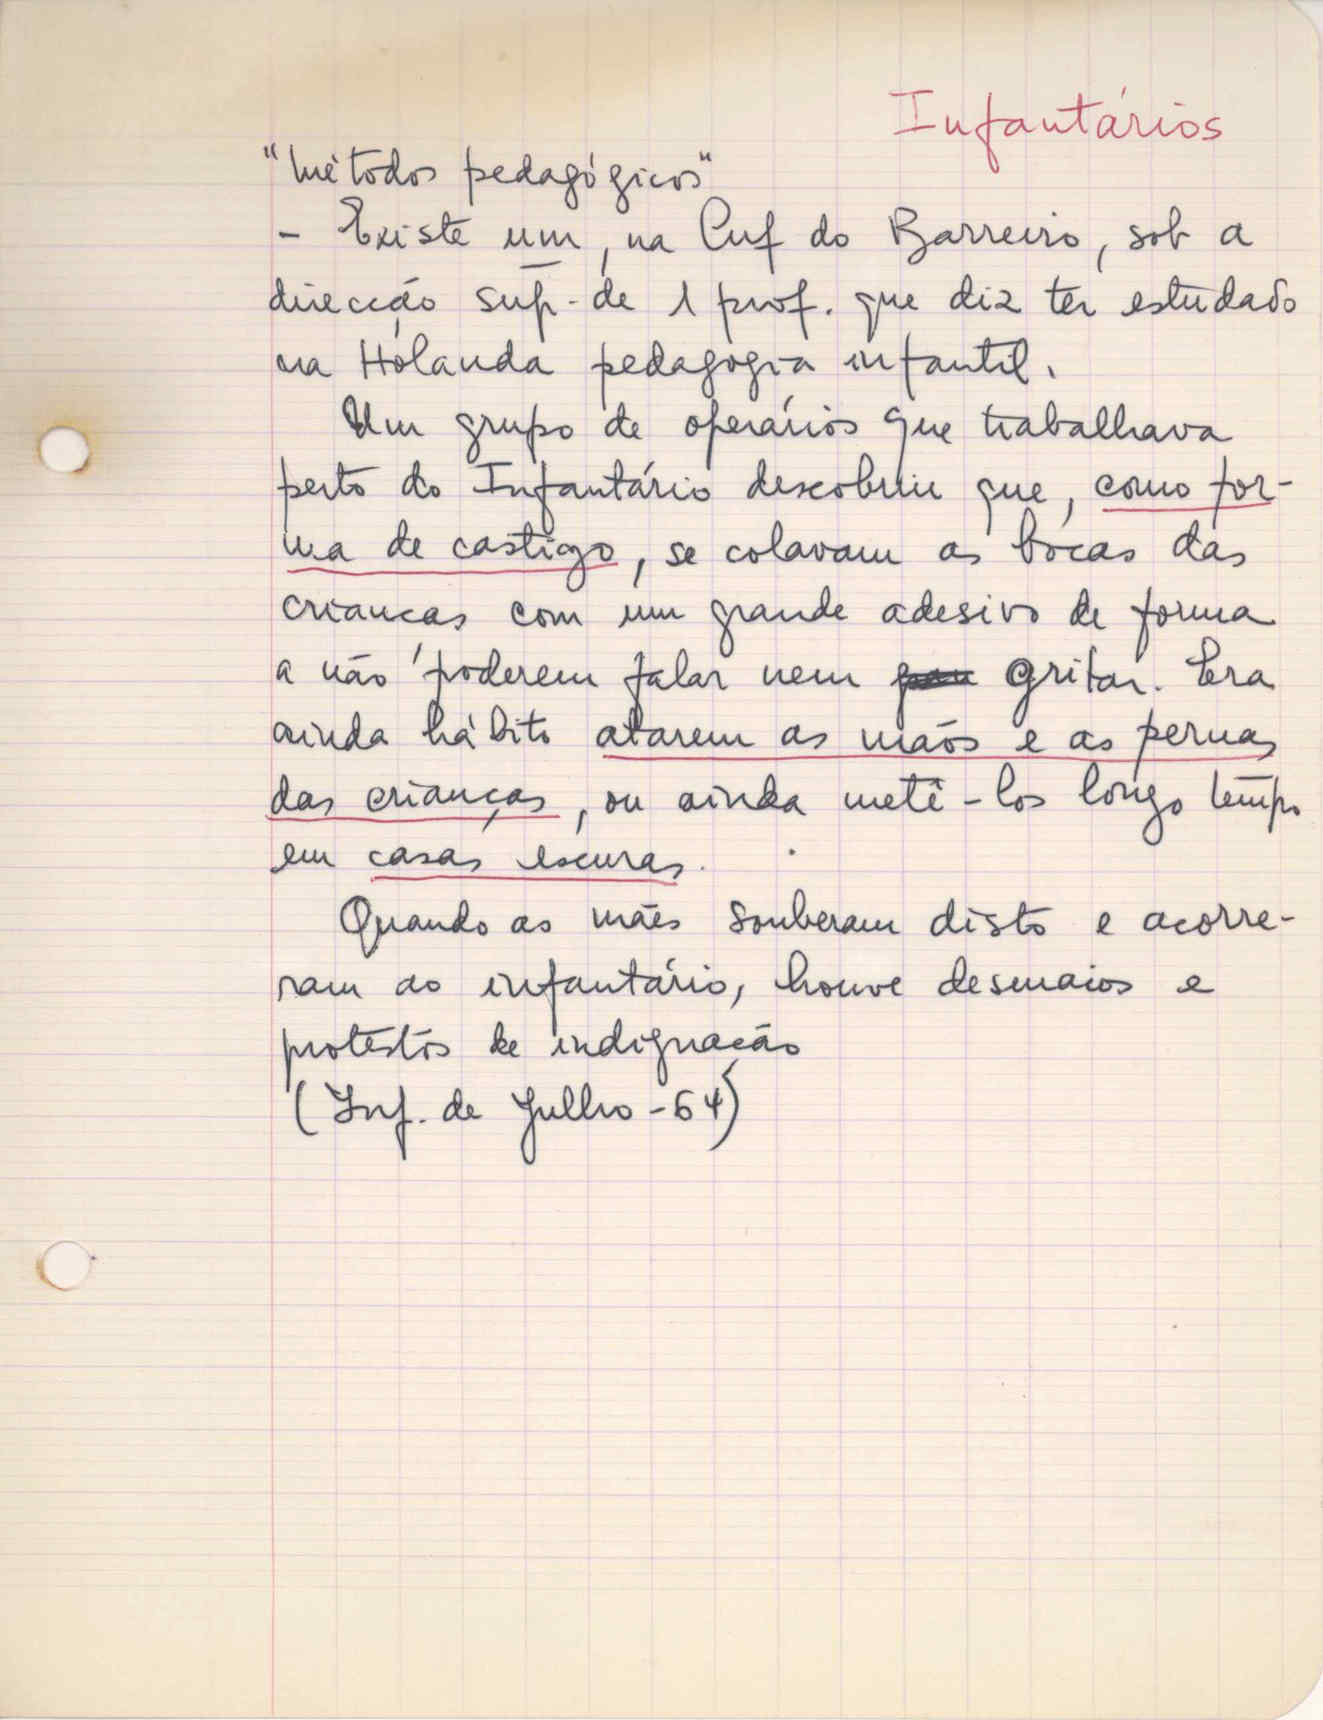 Infantários
"Métodos pedagógicos"
- Existe um, na Cuf do Barreiro, sob a
direcção sup. de 1 prof. que diz ter estudado
na Holanda pedagogia infantil.
Um grupo de operários que trabalhava
perto do Infantário descobriu que, como for-
ma de castigo, se colavam as bocas das
crianças com um grande adesivo de forma
a não poderem falar nem gritar. Era
ainda hábito atarem as mãos e as pernas
das crianças, ou ainda metê-los longo tempo
em casas escuras.
Quando as mães souberam disto e acorre-
ram ao infantário, houve desmaios e
protestos de indignação
(Inf. de Julho - 64)